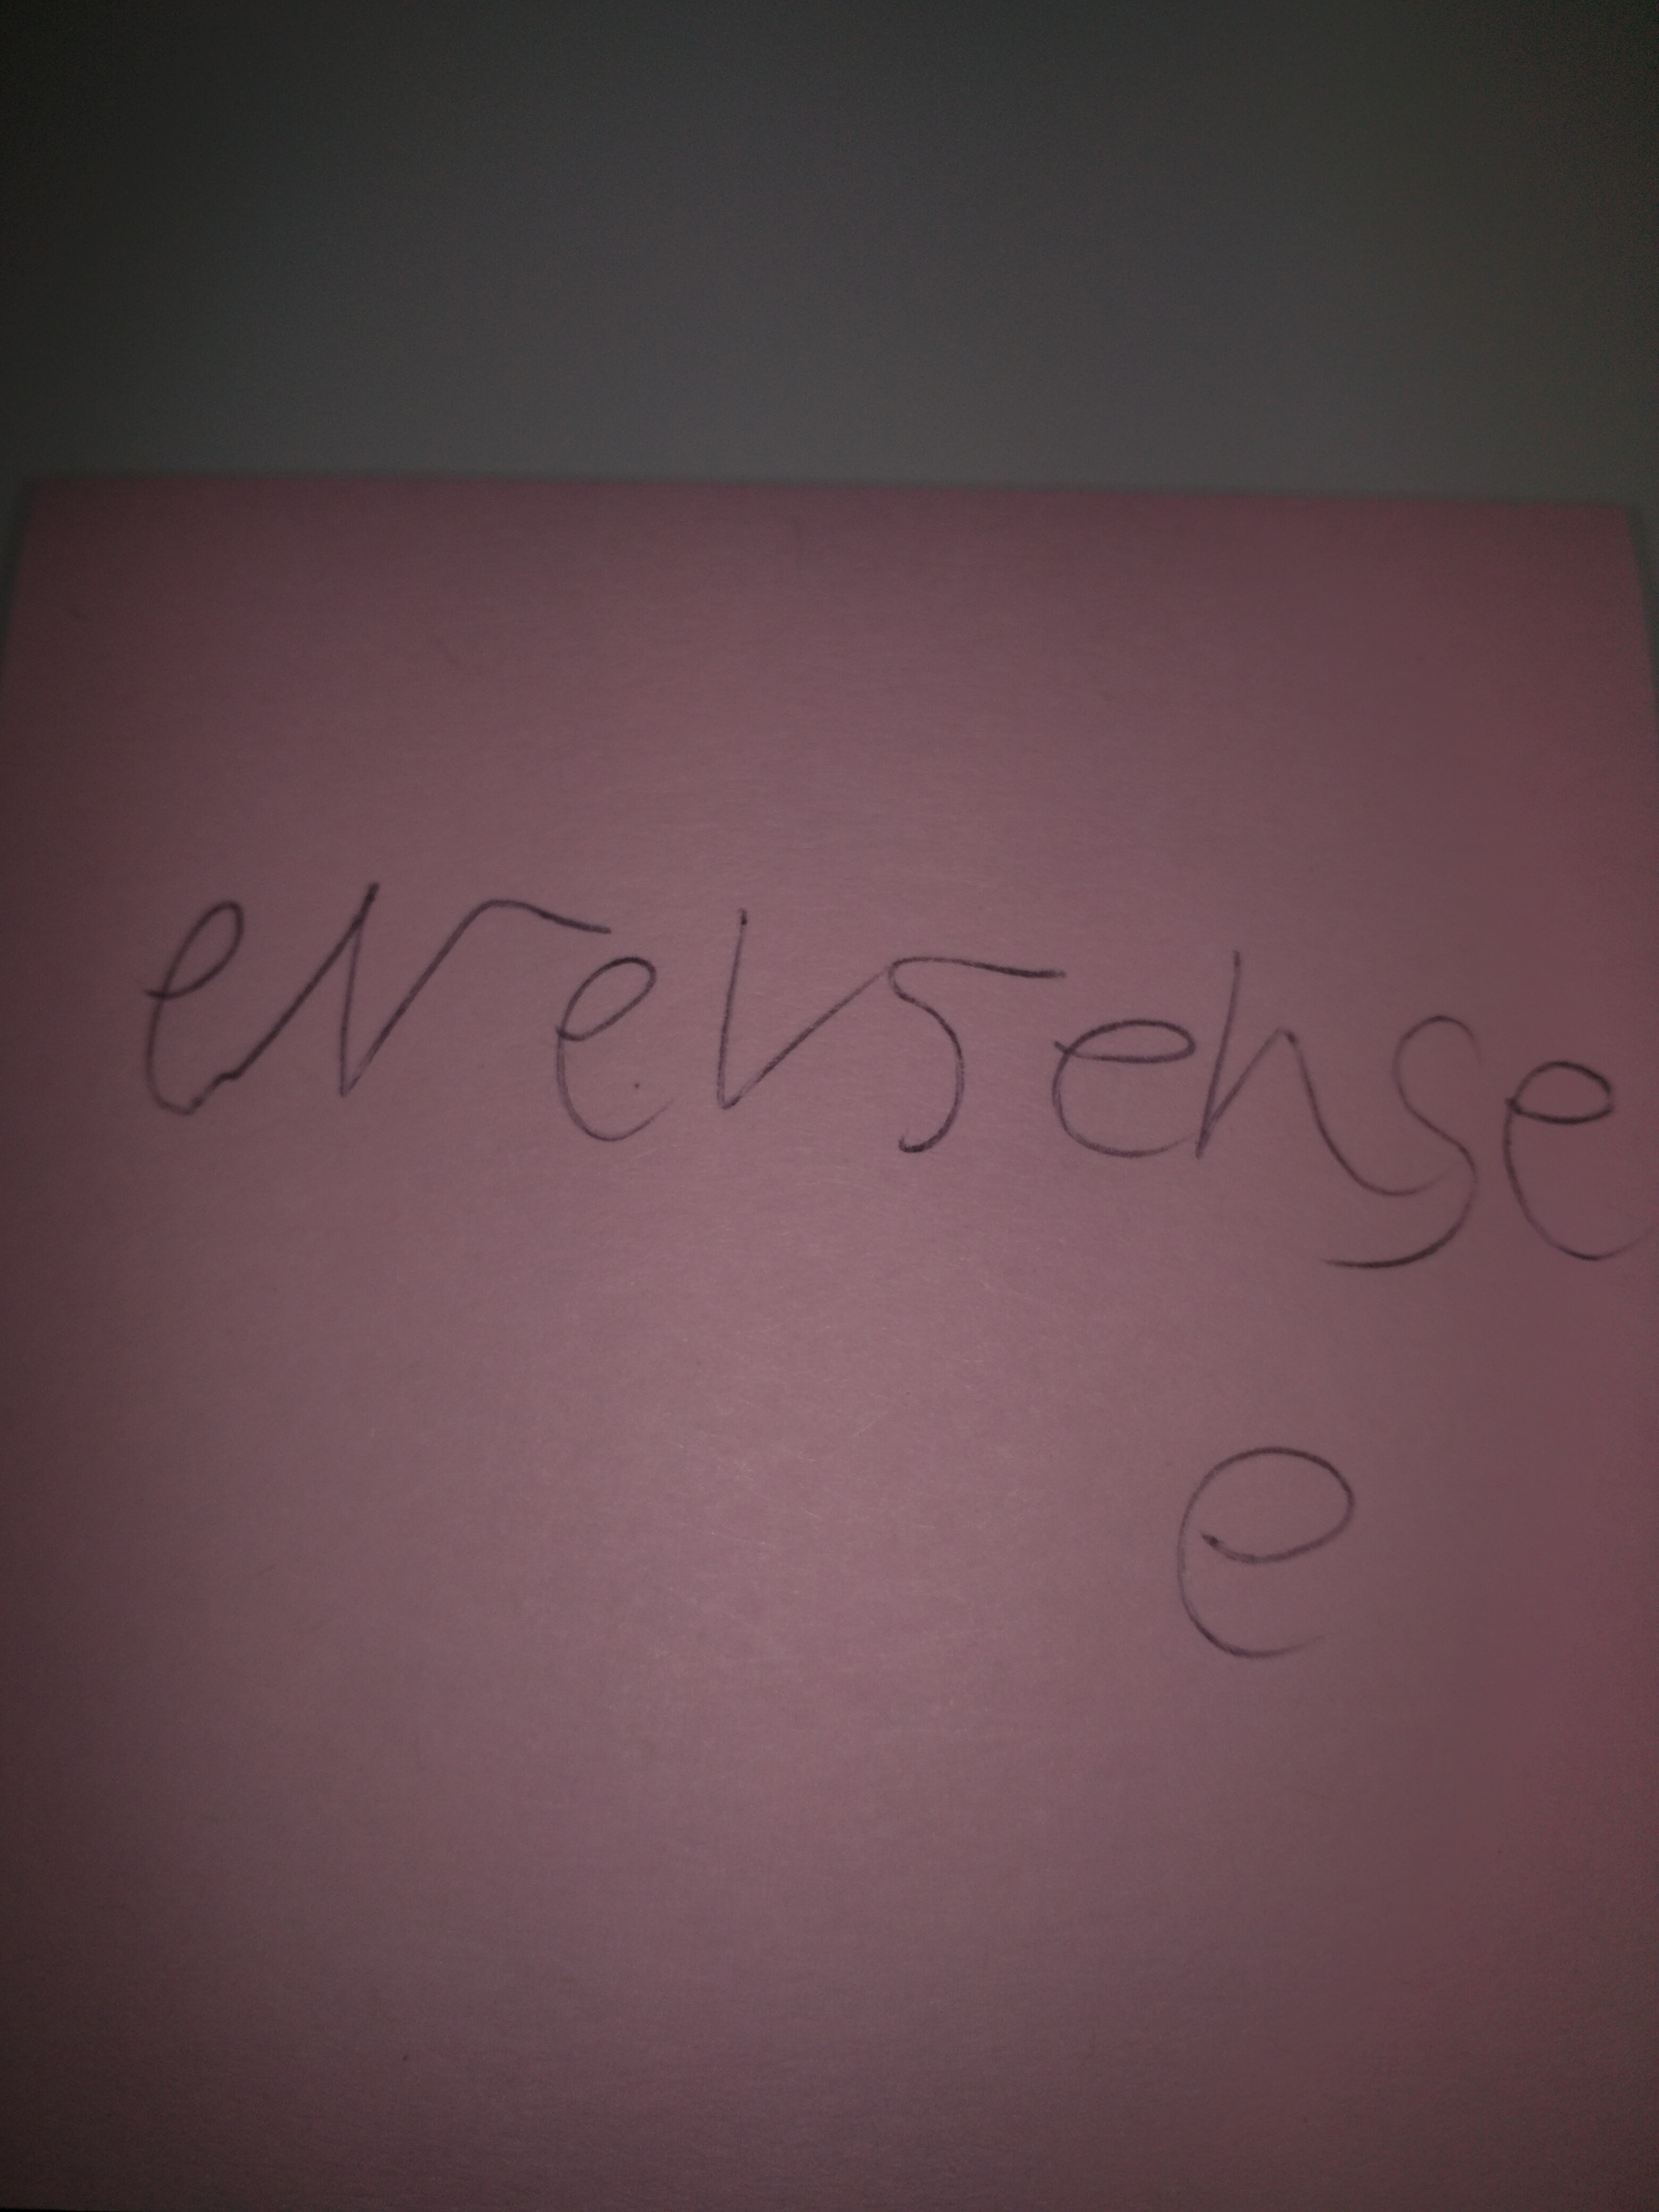 eversense
e